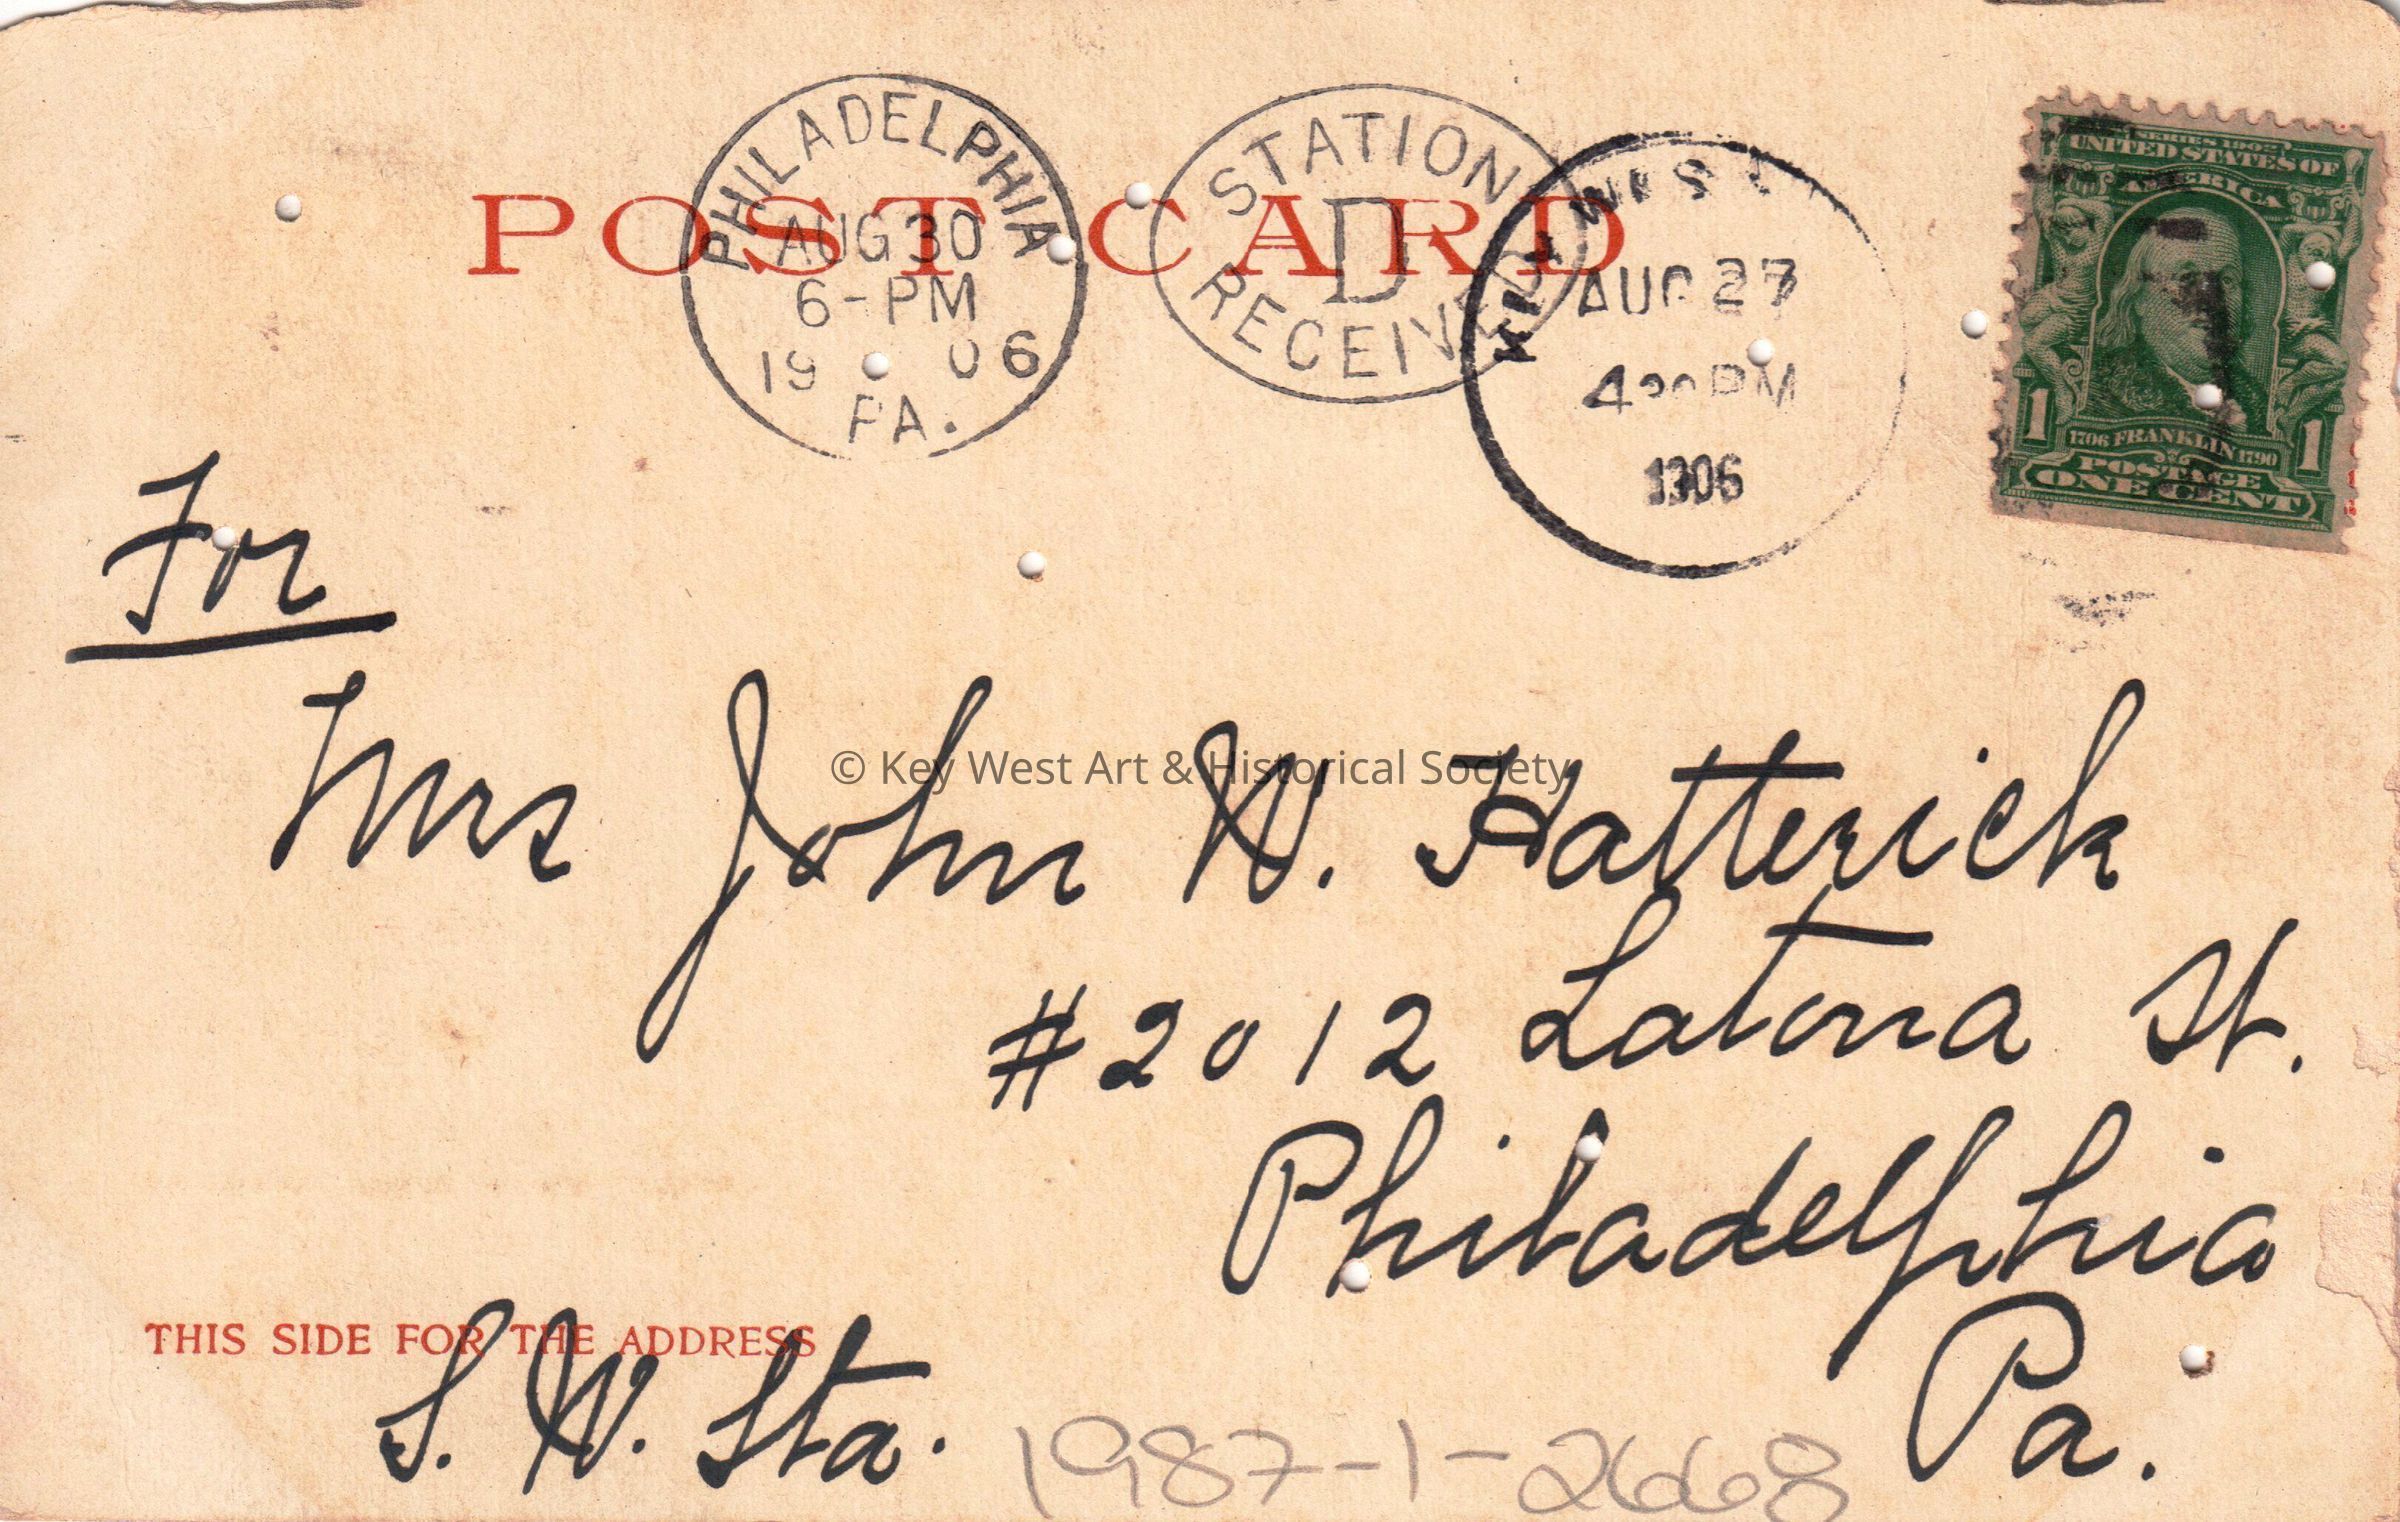 POST CARD
PHILADELPHIA
AUG 30
6-PM
1906
PA.
STATION
D
RECEIVED
KEY WEST
AUG 27
PM
1906
SERIES 1902
UNITED STATES OF
AMERICA
1706 FRANKLIN 1790
POSTAGE
1 ONE CENT 1
For
Mrs John W. Hatterick
#2012 Latona St.
Philadelphia
Pa.
THIS SIDE FOR THE ADDRESS
S. W. Sta.
1987-1-2668
© Key West Art & Historical Society